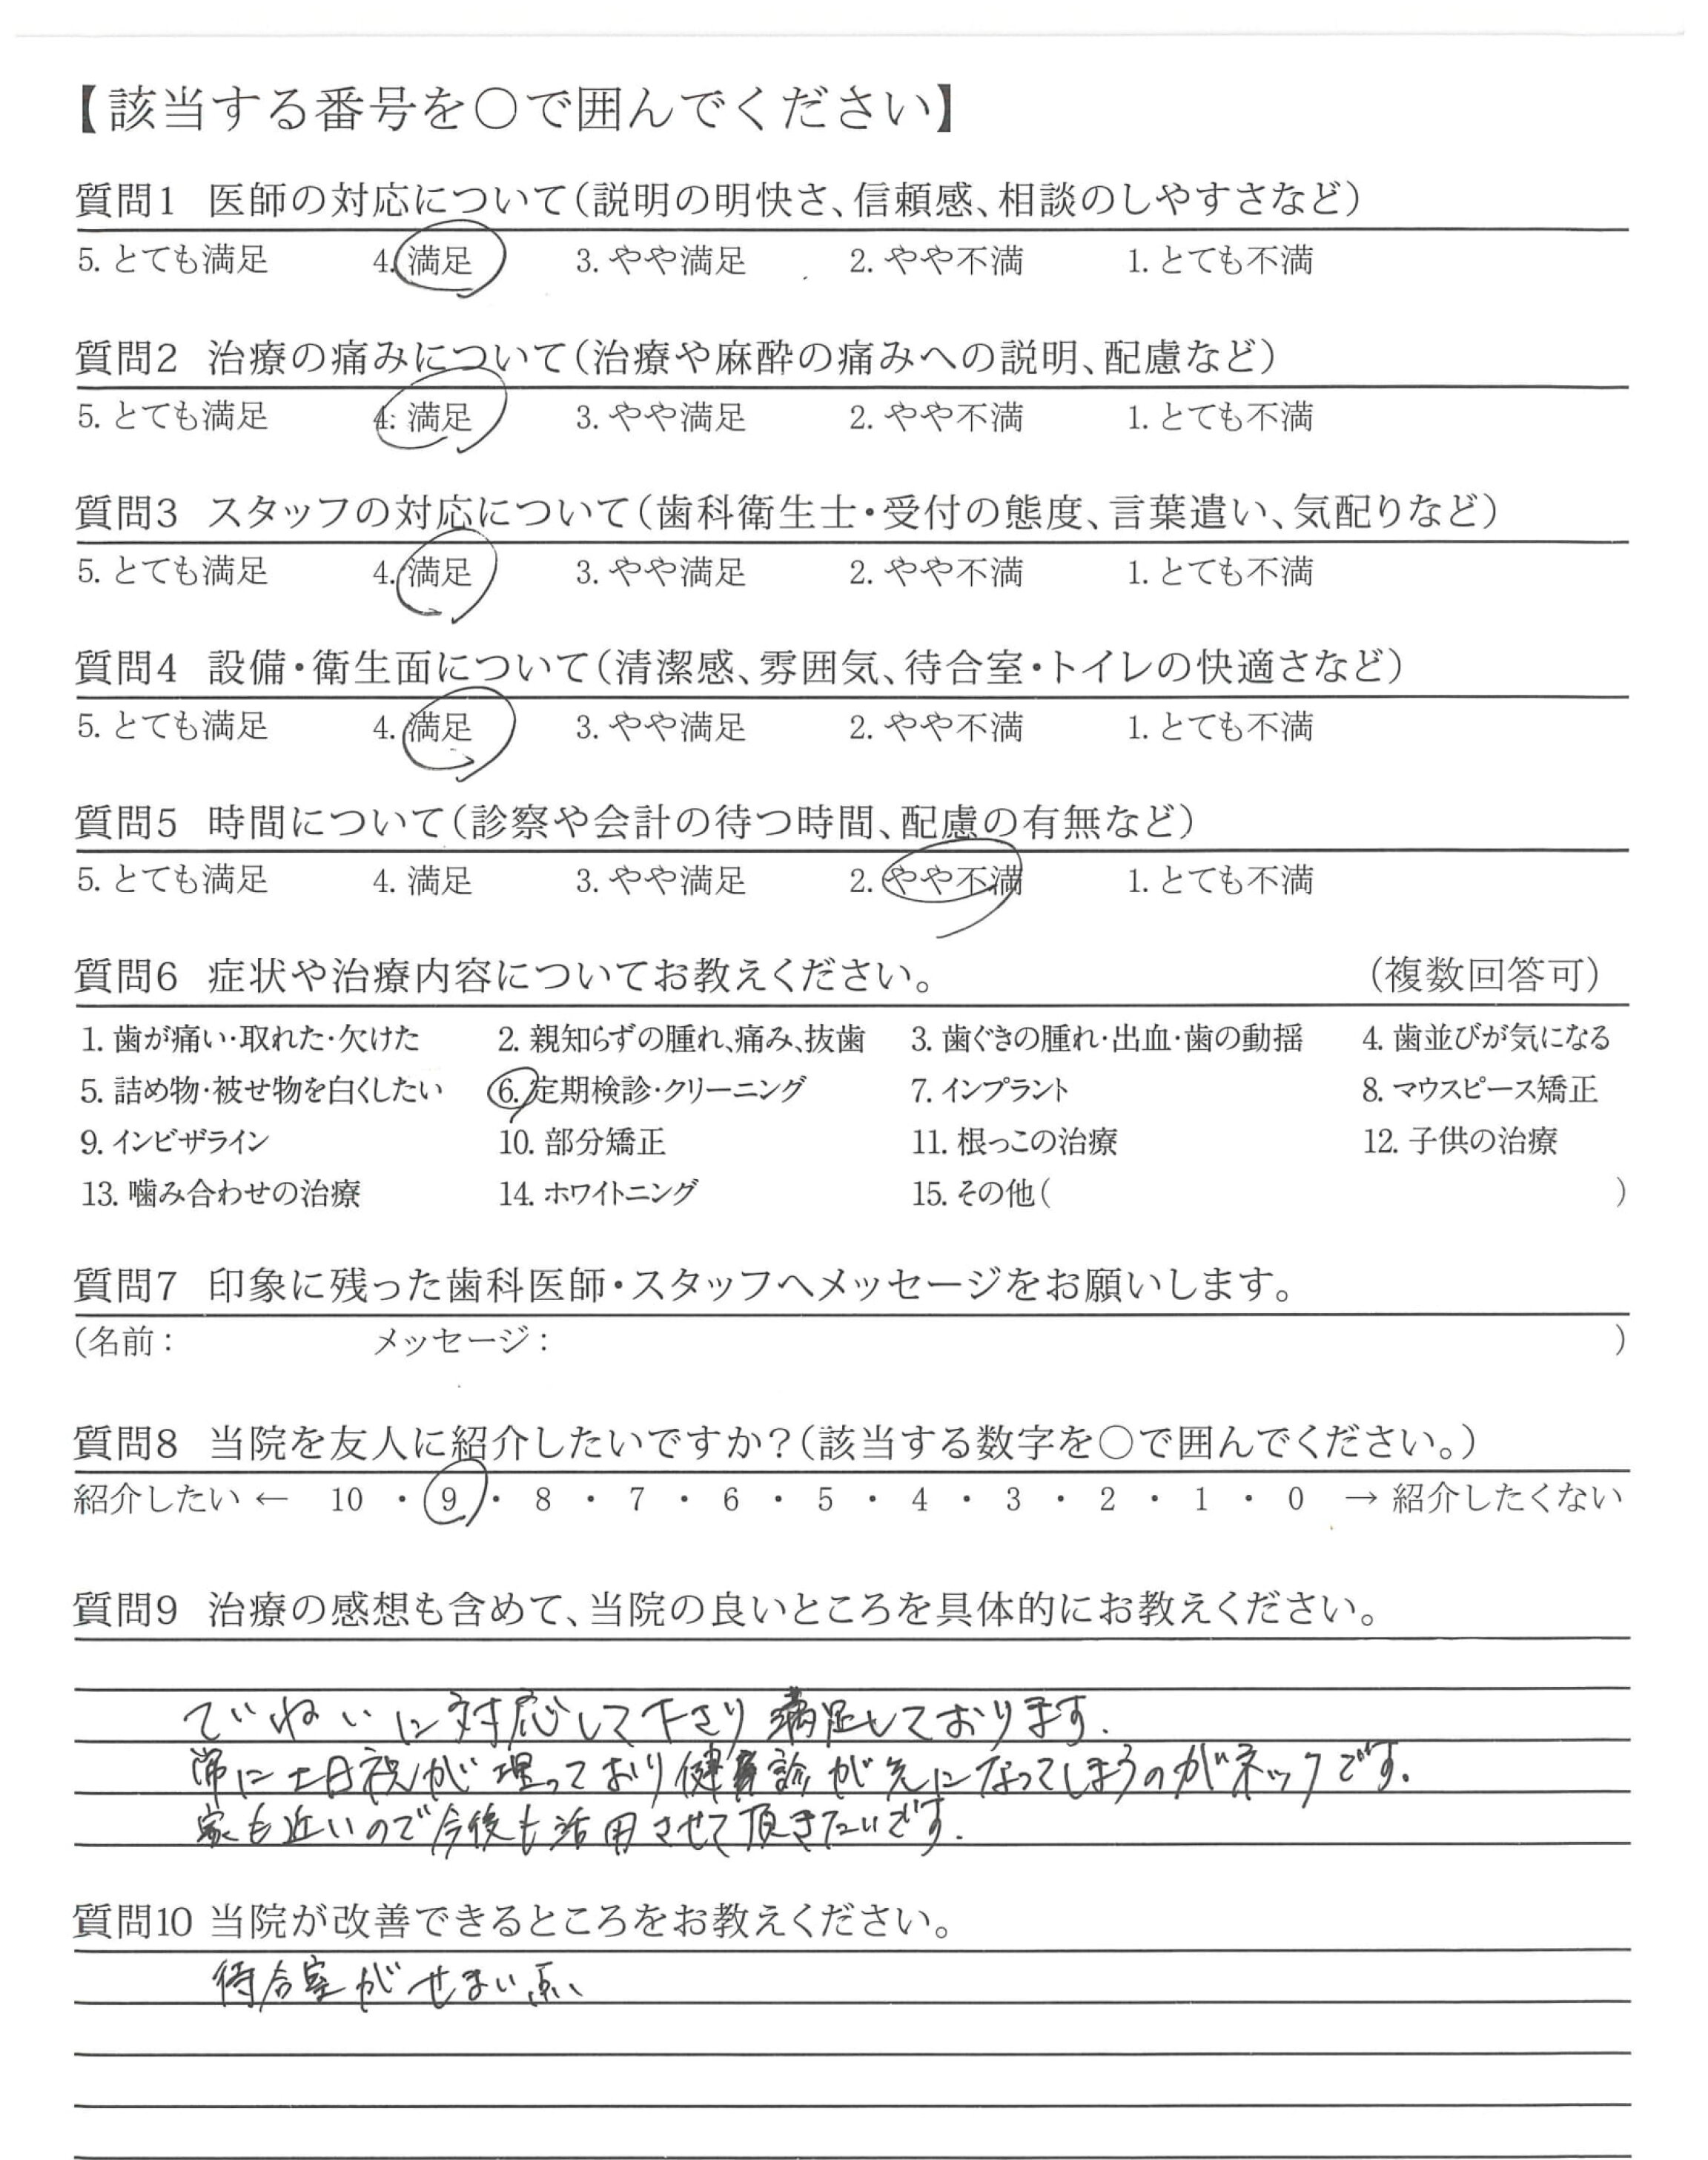 【該当する番号を○で囲んでください】
質問1 医師の対応について(説明の明快さ、信頼感、相談のしやすさなど)
5. とても満足 4. 満足 3. やや満足 2. やや不満 1. とても不満
質問2 治療の痛みについて(治療や麻酔の痛みへの説明、配慮など)
5. とても満足 4. 満足 3. やや満足 2. やや不満 1. とても不満
質問3 スタッフの対応について(歯科衛生士・受付の態度、言葉遣い、気配りなど)
5. とても満足 4. 満足 3. やや満足 2. やや不満 1. とても不満
質問4 設備・衛生面について(清潔感、雰囲気、待合室・トイレの快適さなど)
5. とても満足 4. 満足 3. やや満足 2. やや不満 1. とても不満
質問5 時間について(診察や会計の待つ時間、配慮の有無など)
5. とても満足 4. 満足 3. やや満足 2. やや不満 1. とても不満
質問6 症状や治療内容についてお教えください。 (複数回答可)
1. 歯が痛い・取れた・欠けた 2. 親知らずの腫れ、痛み、抜歯 3. 歯ぐきの腫れ・出血・歯の動揺 4. 歯並びが気になる
5. 詰め物・被せ物を白くしたい 6. 定期検診・クリーニング 7. インプラント 8. マウスピース矯正
9. インビザライン 10. 部分矯正 11. 根っこの治療 12. 子供の治療
13. 噛み合わせの治療 14. ホワイトニング 15. その他( )
質問7 印象に残った歯科医師・スタッフへメッセージをお願いします。
(名前: メッセージ: )
質問8 当院を友人に紹介したいですか?(該当する数字を○で囲んでください。)
紹介したい ← 10 ・ 9 ・ 8 ・ 7 ・ 6 ・ 5 ・ 4 ・ 3 ・ 2 ・ 1 ・ 0 → 紹介したくない
質問9 治療の感想も含めて、当院の良いところを具体的にお教えください。
ていねいに対応して下さり満足しております.
常に土日祝が埋っており健診が先になってしまうのがネックです.
家も近いので今後も活用させて頂きたいです.
質問10 当院が改善できるところをお教えください。
待合室がせまい点、